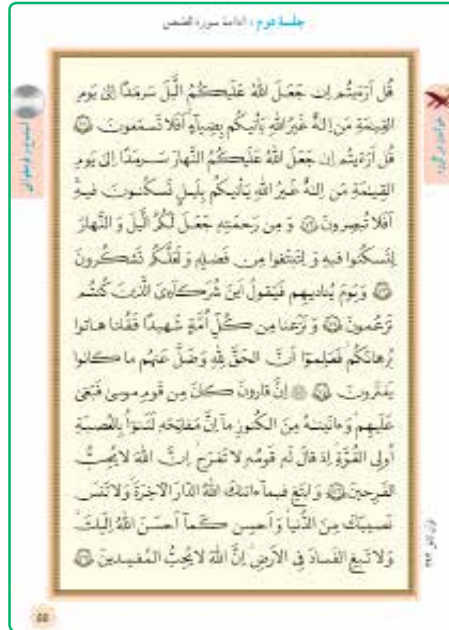 جلسهٔ دوم: ادامهٔ سورهٔ القصص
قُل اَرَءَیتُم اِن جَعَلَ اللّٰهُ عَلَیکُمُ الَّیلَ سَرمَدًا اِلیٰ یَومِ
القِیٰمَةِ مَن اِلٰهٌ غَیرُ اللّٰهِ یَأتیکُم بِضِیآءٍ اَفَلا تَسمَعونَ ﴿۷۱﴾
قُل اَرَءَیتُم اِن جَعَلَ اللّٰهُ عَلَیکُمُ النَّهارَ سَرمَدًا اِلیٰ یَومِ
القِیٰمَةِ مَن اِلٰهٌ غَیرُ اللّٰهِ یَأتیکُم بِلَیلٍ تَسکُنونَ فیهِ
اَفَلا تُبصِرونَ ﴿۷۲﴾ وَ مِن رَحمَتِهٖ جَعَلَ لَکُمُ الَّیلَ وَ النَّهارَ
لِتَسکُنوا فیهِ وَ لِتَبتَغوا مِن فَضلِهٖ وَ لَعَلَّکُم تَشکُرونَ
﴿۷۳﴾ وَ یَومَ یُنادیهِم فَیَقولُ اَینَ شُرَکآءِیَ الَّذینَ کُنتُم
تَزعُمونَ ﴿۷۴﴾ وَ نَزَعنا مِن کُلِّ اُمَّةٍ شَهیدًا فَقُلنا هاتوا
بُرهانَکُم فَعَلِموا اَنَّ الحَقَّ لِلّٰهِ وَ ضَلَّ عَنهُم ما کانوا
یَفتَرونَ ﴿۷۵﴾ ۞ اِنَّ قارونَ کانَ مِن قَومِ موسیٰ فَبَغیٰ
عَلَیهِم وَ ءاتَینٰهُ مِنَ الکُنوزِ ما اِنَّ مَفاتِحَهٗ لَتَنوأُ بِالعُصبَةِ
اُولِی القُوَّةِ اِذ قالَ لَهٗ قَومُهٗ لا تَفرَح اِنَّ اللّٰهَ لا یُحِبُّ
الفَرِحینَ ﴿۷۶﴾ وَ ابتَغِ فیمآ ءاتٰکَ اللّٰهُ الدّارَ الآخِرَةَ وَ لا تَنسَ
نَصیبَکَ مِنَ الدُّنیا وَ اَحسِن کَمآ اَحسَنَ اللّٰهُ اِلَیکَ
وَ لا تَبغِ الفَسادَ فِی الاَرضِ اِنَّ اللّٰهَ لا یُحِبُّ المُفسِدینَ ﴿۷۷﴾